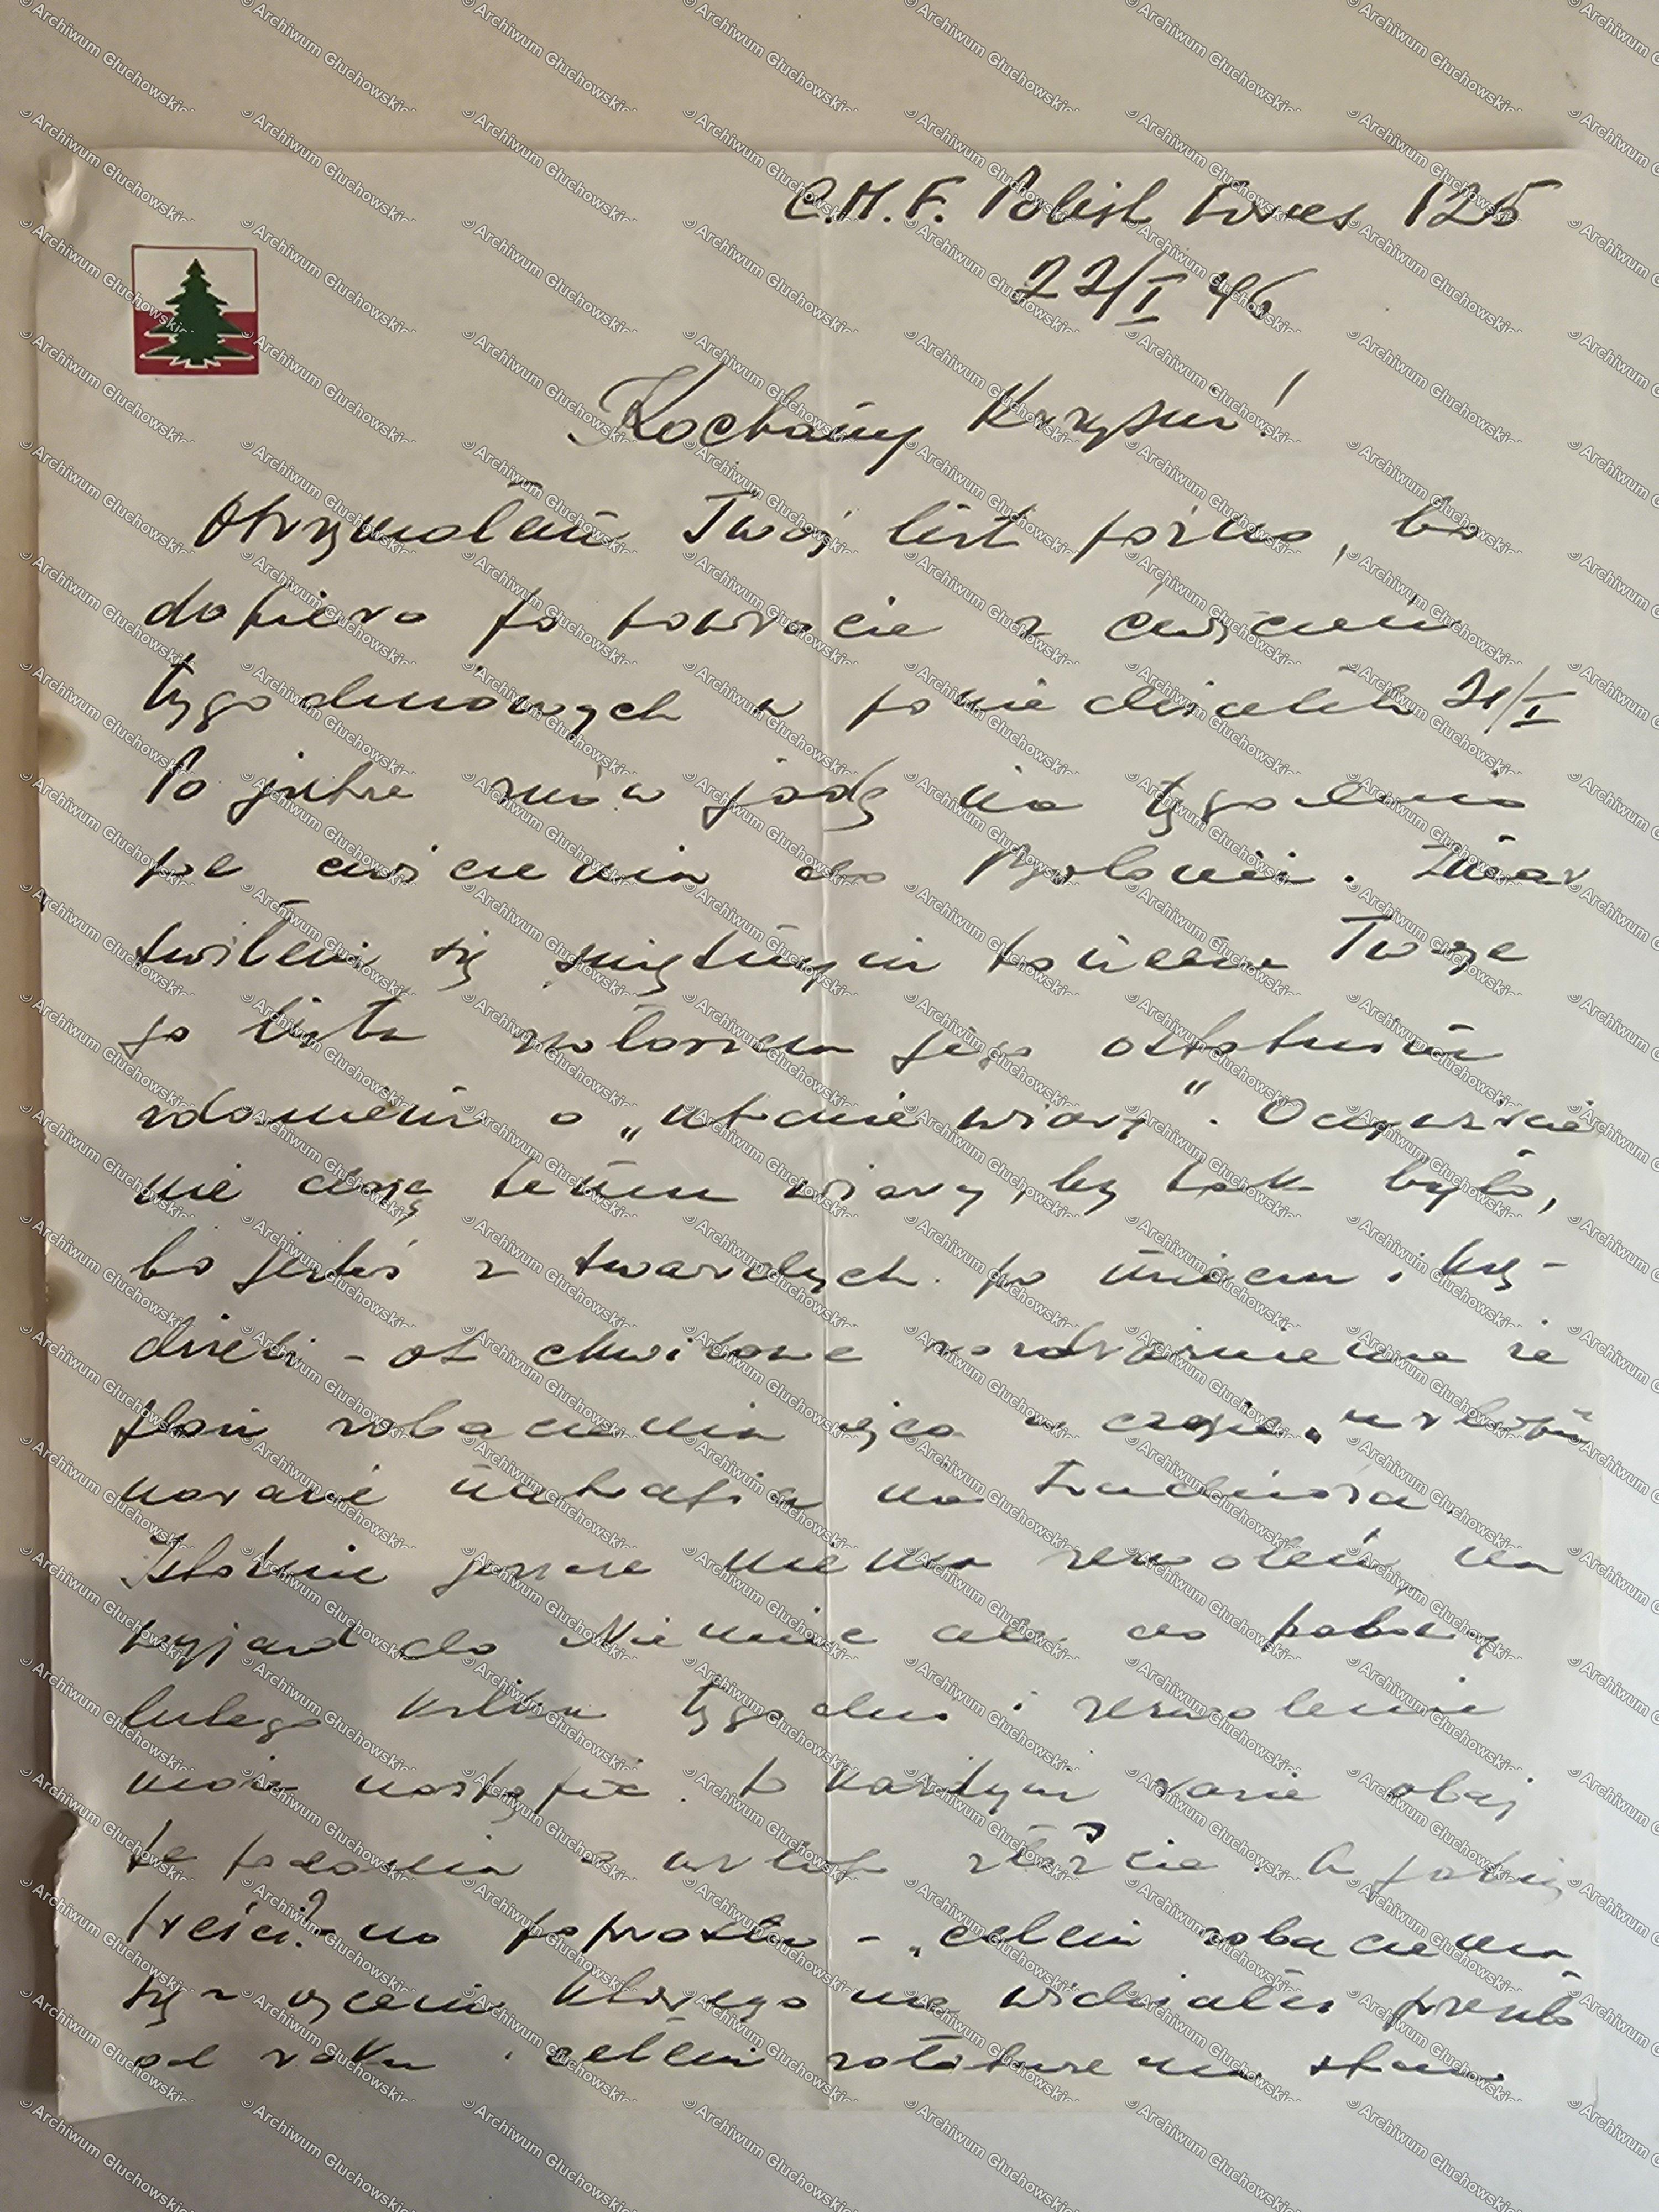 C.M.F. Polish Forces 125
22/I 46
Kochany Krzysiu!
Otrzymałem Twój list późno, bo
dopiero po powrocie z ćwiczeń
tygodniowych w poniedziałek 21/I
Po jutrze znów jadę na tygodnio
we ćwiczenia do Bolonii. Zmar
twiłem się smętnym tonem Twoje
go listu zwłaszcza jego ostatnim
zdaniem o „utracie wiary". Oczywiście
nie daję temu wiary, by tak było,
bo jesteś z twardych po mieczu i ką-
dzieli - ot chwilowe rozdrażnienie że
plan zobaczenia ojca w czasie urlopu
narazie natrafia na trudności.
Istotnie jeszcze niema zezwoleń na
wyjazd do Niemiec ale do połowy
lutego kilka tygodni i zezwolenie
może nastąpić. W każdym razie obaj
te podania o urlop złóżcie. A jakiej
treści? no poprostu - „celem zobaczenia
się z ojcem którego nie widziałem przeszło
od roku i celem załatwienia